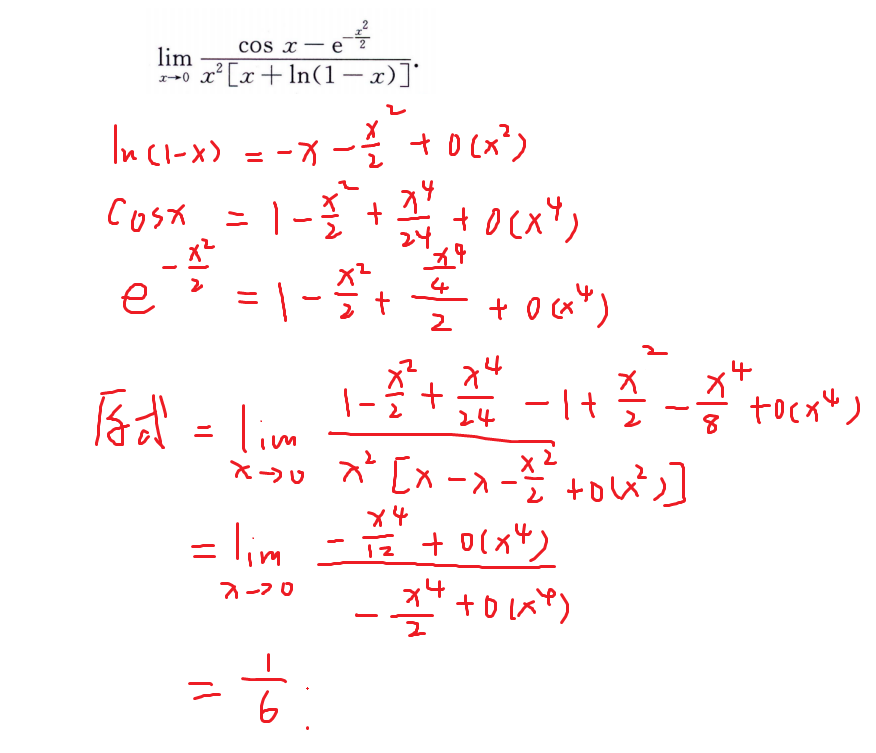 lim_{x→0} (cos x − e^{−x²/2}) / (x²[x + ln(1 − x)]).
ln(1-x) = -x - x²/2 + o(x²)
cosx = 1 - x²/2 + x⁴/24 + o(x⁴)
e^{-x²/2} = 1 - x²/2 + (x⁴/4)/2 + o(x⁴)
原式 = lim_{x→0} (1 - x²/2 + x⁴/24 - 1 + x²/2 - x⁴/8 + o(x⁴)) / (x²[x - x - x²/2 + o(x²)])
= lim_{x→0} (-x⁴/12 + o(x⁴)) / (-x⁴/2 + o(x⁴))
= 1/6.